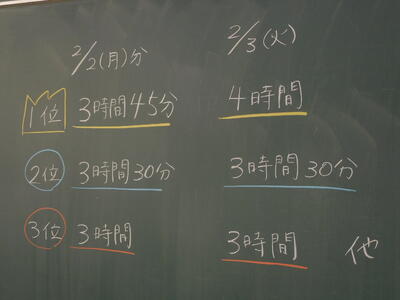 2/2(月)分 2/3(火)
1位 3時間45分 4時間
2位 3時間30分 3時間30分
3位 3時間 3時間 他